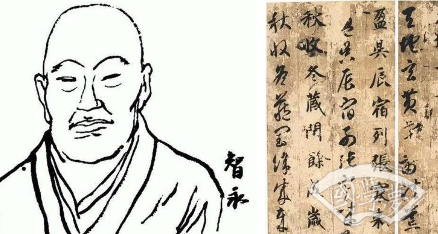 智永
天地玄黄
盈昃辰宿列張寒来
盈昃辰宿列張
秋收冬藏閏餘成歲
秋收冬藏閏餘成歲